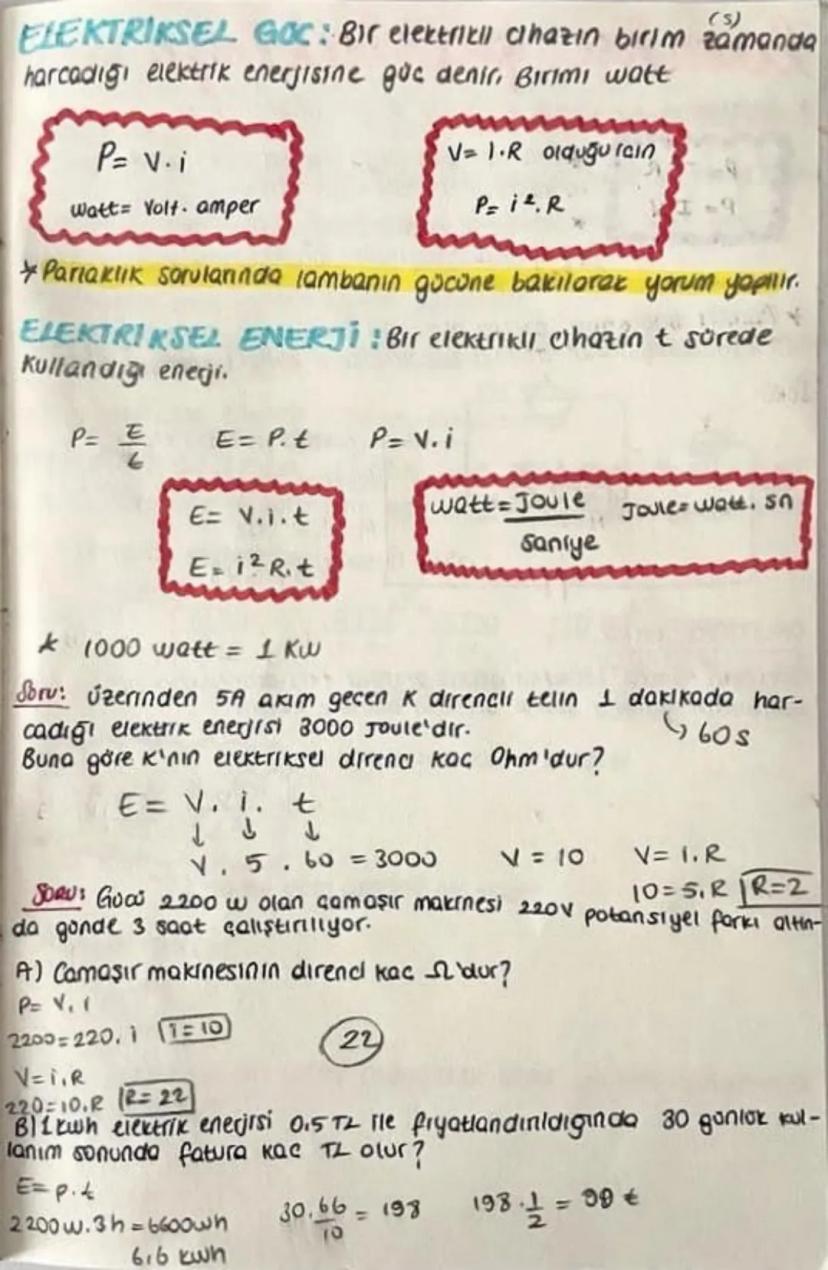 (s)
ELEKTRİKSEL GÜC: Bir elektrikli cihazın birim zamanda
harcadığı elektrik enerjisine güc denir. Birimi watt
P= V.i
watt= Volt. amper
V= I.R olduğu icin
P= i².R
* Parlaklık sorularında lambanın gücüne bakılarak yorum yapılır.
ELEKTRİKSEL ENERJİ: Bir elektrikli cihazın t sürede
kullandığı enerji.
P= E/t E= P.t P= V.i
E= V.i.t
E= i².R.t
watt= Joule/saniye Joule= watt. sn
* 1000 watt = 1 KW
Soru: Üzerinden 5A akım gecen K direncli telin 1 dakikada har-
cadığı elektrik enerjisi 3000 Joule'dir. ↳ 60s
Buna göre K'nın elektriksel direnci kac Ohm'dur?
E= V. i. t
↓ ↓ ↓
V . 5 . 60 = 3000 V = 10 V= I.R
10=5.R R=2
Soru: Gücü 2200 w olan camaşır makinesi 220V potansiyel farkı altın-
da günde 3 saat çalıştırılıyor.
A) Camaşır makinesinin direnci kac Ω'dur?
P= V.I
2200=220.i i=10 22
V=i.R
220=10.R R=22
B) 1 kwh elektrik enerjisi 0.5 TL ile fiyatlandırıldığında 30 günlük kul-
lanım sonunda fatura kac TL olur?
E= p.t
2200w.3h=6600wh 30.66/10 = 198 198.1/2 = 99 ₺
6,6 kwh